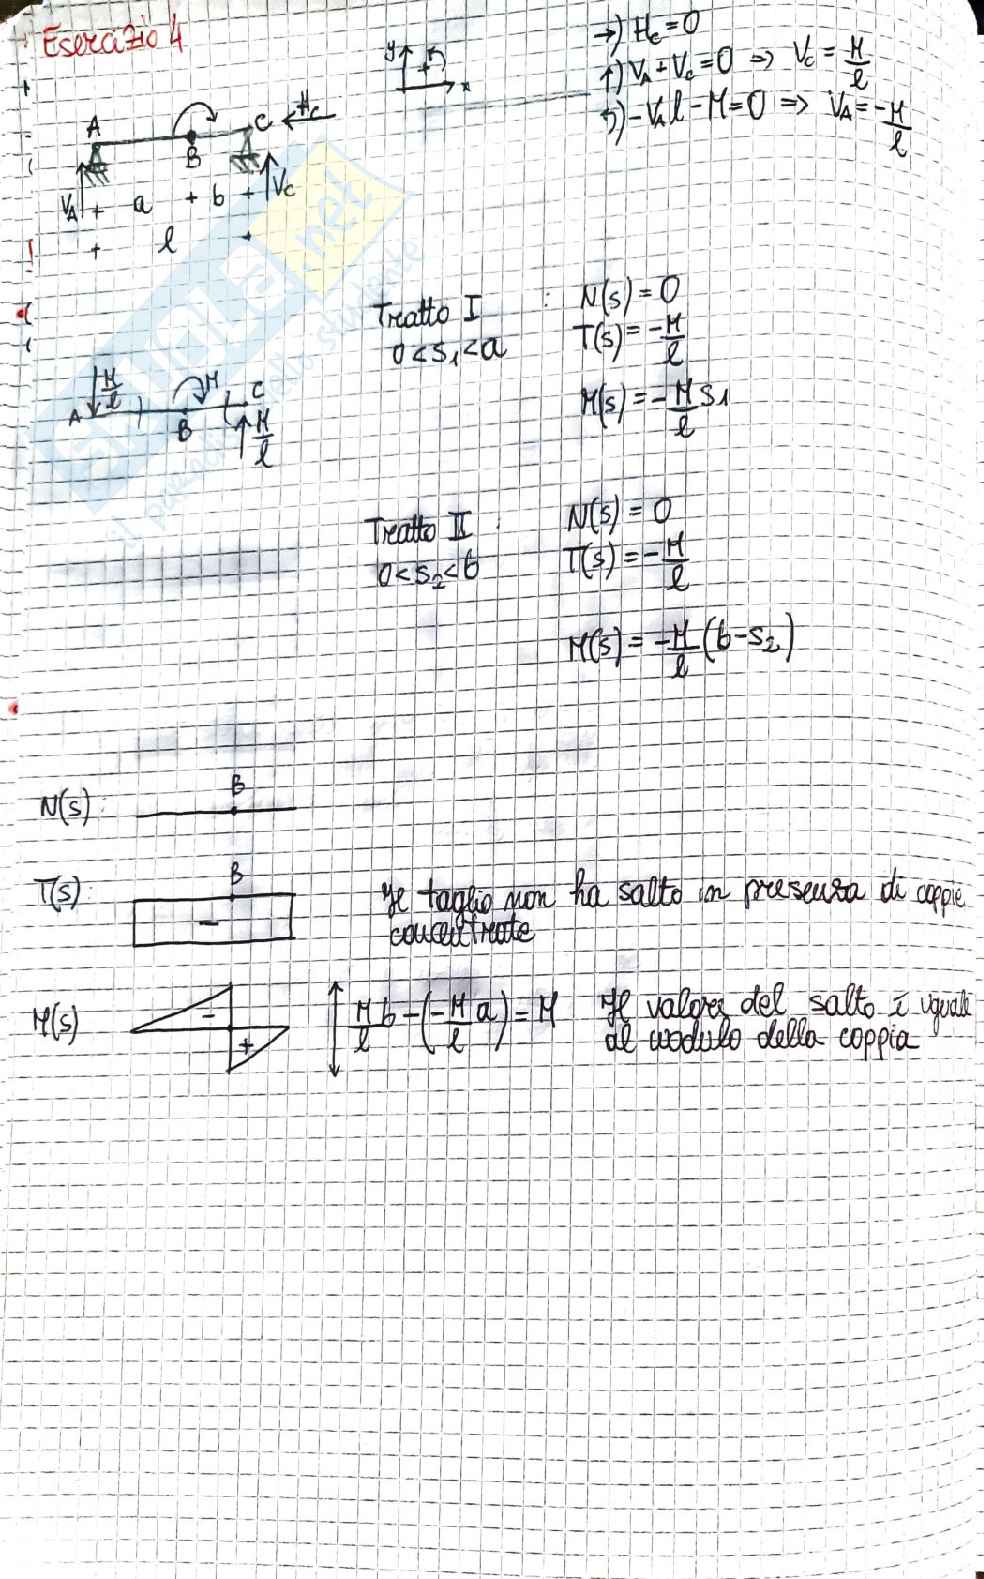 Esercizio 4
y
+
x
→) H_c = 0
↑) V_A + V_c = 0 ⇒ V_c = M/l
↺) -V_A l - M = 0 ⇒ V_A = -M/l
A
B
C
H_c
V_A
V_C
+ a + b +
+ l +
Tratto I :
0 < s₁ < a
N(s) = 0
T(s) = -M/l
M(s) = -M/l s₁
M/l
M
A
B
C
M/l
Tratto II :
0 < s₂ < b
N(s) = 0
T(s) = -M/l
M(s) = -M/l (b - s₂)
N(s):
B
T(s):
B
-
Il taglio non ha salto in presenza di coppie
concentrate
M(s)
-
+
M/l b - (-M/l a) = M
Il valore del salto è uguale
al modulo della coppia
skuola.net